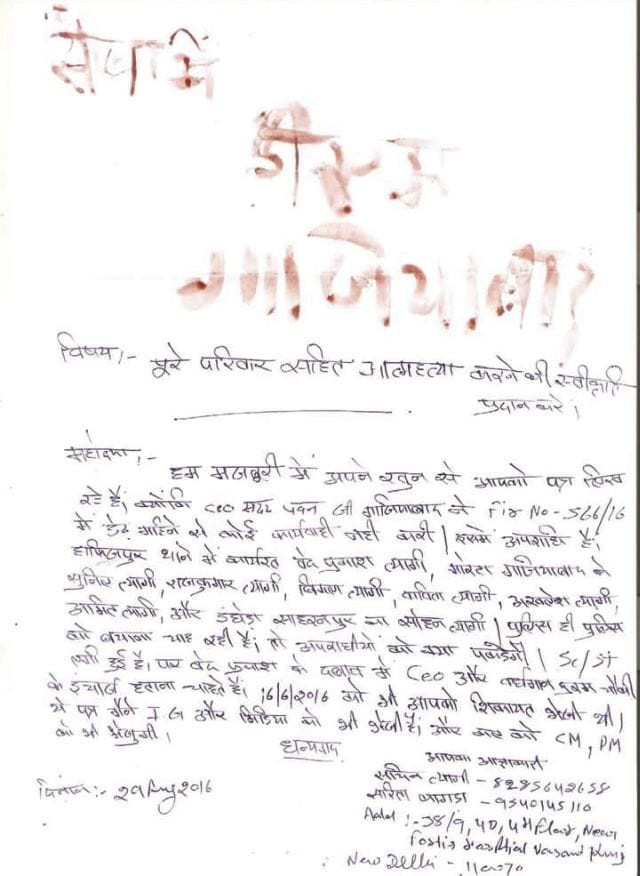 सेवा में
डी एम
गाजियाबाद
विषय:- पूरे परिवार सहित आत्महत्या करने की स्वीकृति
प्रदान करे।
महोदया,-
हम मजबुरी में अपने खुन से आपको पत्र लिख
रहे हैं, क्योंकि CEO सदर पवन जी गाजियाबाद ने Fir No-566/16
में डेढ महिने से कोई कार्यवाही नही करी। इसमें अपराधि है,
हाफिजपुर थाने में कार्यरत वेद प्रकाश त्यागी, गाजियाबाद के
सुनिल त्यागी, राजकुमार त्यागी, विकास त्यागी, कविता त्यागी, अखलेश त्यागी,
अमित त्यागी, और सहारनपुर का सोहन त्यागी। पुलिस ही पुलिस
को बचाना चाह रही है, तो अपराधीयों को क्या पकडेगी। SC/ST
लगी हुई है, पर वेद प्रकाश के दबाव में CEO और चौकी
के इंचार्ज हटाना चाहते हैं। 16/6/2016 को भी आपको शिकायत भेजी थी।
ये पत्र मैने I.G और मिडिया को भी भेजी है, और कल को CM, PM
को भी भेजुगी।
धन्यवाद
दिनांक:- 29 Aug 2016
आपका आज्ञाकारी
सचिन त्यागी - 8285642658
सरिता - 9540145110
Add:-38/9, 4D, 4th Floor, Near
Fostis Hospital Vasant Kunj
New Delhi - 110070